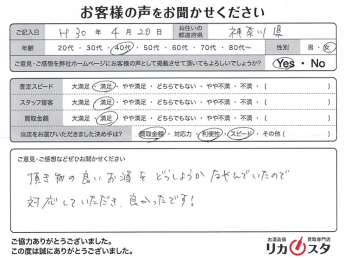 お客様の声をお聞かせください
ご記入日 H30年4月20日 お住いの都道府県 神奈川県
年齢 20代・30代・40代・50代・60代・70代・80代～ 性別 男・女
ご意見・ご感想を弊社ホームページにお客様の声として掲載させて頂いてもよろしいでしょうか? Yes・No
査定スピード 大満足・満足・やや満足・どちらでもない・やや不満・不満・( )
スタッフ接客 大満足・満足・やや満足・どちらでもない・やや不満・不満・( )
買取金額 大満足・満足・やや満足・どちらでもない・やや不満・不満・( )
当店をお選びいただきました決め手は? 買取金額・対応力・利便性・スピード・その他( )
ご意見・ご感想などぜひお聞かせください
頂き物の良いお酒をどうしようか悩んでいたので
対応していただき、良かったです!
ご協力ありがとうございました。
この度は誠にありがとうございました。
お酒高価買取専門店
リカスタ